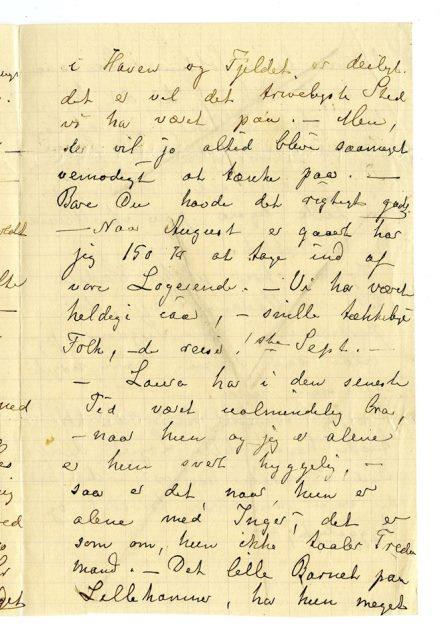 i Haven og Fjeldet er deiligt.
det er vel det triveligste Sted
vi ha været paa. — Men,
der vil jo altid bleve saameget
vemodigt at tænke paa. —
Bare Du havde det rigtigt godt.
— Naar August er gaaet har
jeg 150 Kr at tage ind af
vore Logerende. — Vi ha været
heldige i aar, — snille tækkelige
Folk, — de reise 1ste Sept. —
— Laura ha i den seneste
Tid været ualmindelig bra,
— naar hun og jeg er alene
er hun svært hyggelig, —
saa er det, naar hun er
alene med Inger, det er
som om, hun ikke taaler Treda
mand. — Det lille Barnet paa
Lillehammer, ha hun meget